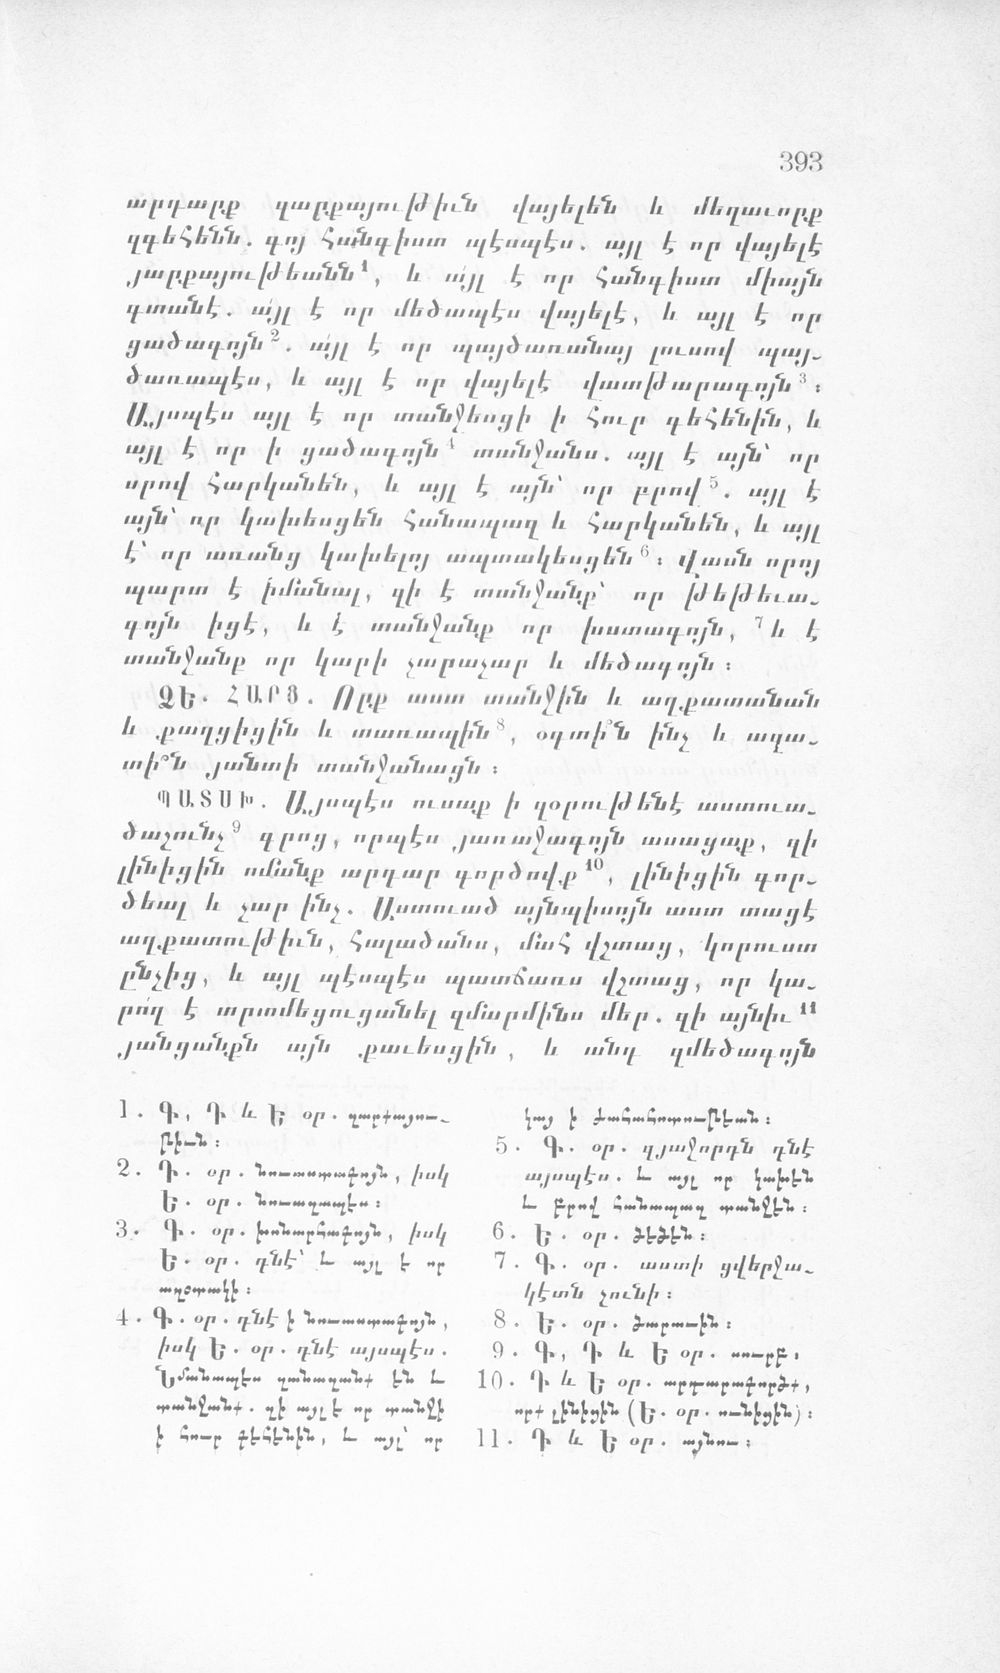 393
արդարք զարքայութիւն վայելեն և մեղաւորք
զգեհենն. գոյ հանգիստ պէսպէս. այլ է որ վայելէ
յարքայութեանն¹, և այլ է որ հանգիստ միայն
գտանէ. այլ է որ մեծապէս վայելէ, և այլ է որ
ցածագոյն². այլ է որ պայծառանայ լուսով պայ-
ծառապէս, և այլ է որ վայելէ վատթարագոյն³:
Այսպէս այլ է որ տանջեսցի ի հուր գեհենին, և
այլ է որ ի ցածագոյն⁴ տանջանս. այլ է այն՝ որ
սրով հարկանեն, և այլ է այն՝ որ բրով⁵. այլ է
այն՝ որ կախեսցեն հանապազ և հարկանեն, և այլ
է՝ որ առանց կախելոյ ապտակեսցեն⁶: Վասն որոյ
պարտ է իմանալ, զի է տանջանք՝ որ թեթեւա-
գոյն իցէ, և է տանջանք որ խստագոյն, ⁷և է
տանջանք որ կարի չարաչար և մեծագոյն:
ՁԵ. ՀԱՐՑ. Որք աստ տանջին և աղքատանան
և քաղցիցին և տառապին⁸, օգտի՞ն ինչ և ազա-
տի՞ն յանտի տանջանացն:
ՊԱՏՍԽ. Այսպէս ուսաք ի զօրութենէ աստուա-
ծաշունչ⁹ գրոց, որպէս յառաջագոյն ասացաք, զի
լինիցին ոմանք արդար գործովք¹⁰, լինիցին գոր-
ծեալ և չար ինչ. Աստուած այնպիսոյն աստ տացէ
աղքատութիւն, հալածանս, մահ վշտաց, կորուստ
ընչից, և այլ պէսպէս պատճառս վշտաց, որ կա-
րող է տրտմեցուցանել զմարմինս մեր. զի այնիւ¹¹
յանցանքն այն քաւեսցին, և անդ զմեծագոյն
1. Գ, Դ և Ե օր. զարքայու-
թիւն:
2. Դ. օր. նուաստագոյն, իսկ
Ե. օր. նուազապէս:
3. Գ. օր. խոնարհագոյն, իսկ
Ե. օր. դնէ՝ և այլ է որ
աղօտակի:
4. Գ. օր. դնէ ի նուաստագոյն,
իսկ Ե. օր. դնէ այսպէս.
Նմանապէս զանազանք են և
տանջանք. զի այլ է որ տանջի
ի հուր գեհենին, և այլ՝ որ
կայ ի ժահահոտութեան:
5. Գ. օր. զյաջորդն դնէ
այսպէս. և այլ որ կախեն
և բրով հանապազ տանջեն:
6. Ե. օր. ծեծեն:
7. Գ. օր. աստի ցվերջա-
կէտն չունի:
8. Ե. օր. ծարաւին:
9. Գ, Դ և Ե օր. սուրբ:
10. Դ և Ե օր. արդարագործք,
որք լինիցին (Ե. օր. ունիցին):
11. Դ և Ե օր. այնու: